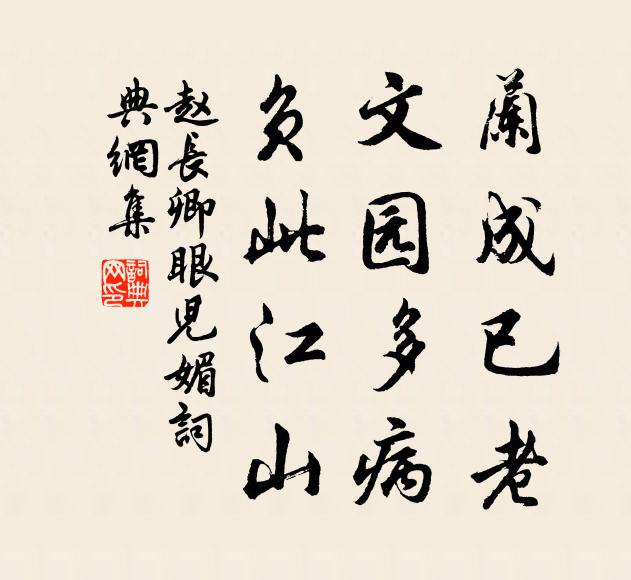 蘭成已老
文园多病
負此江山
赵長卿眼兒媚詞
典網集
詞典网印